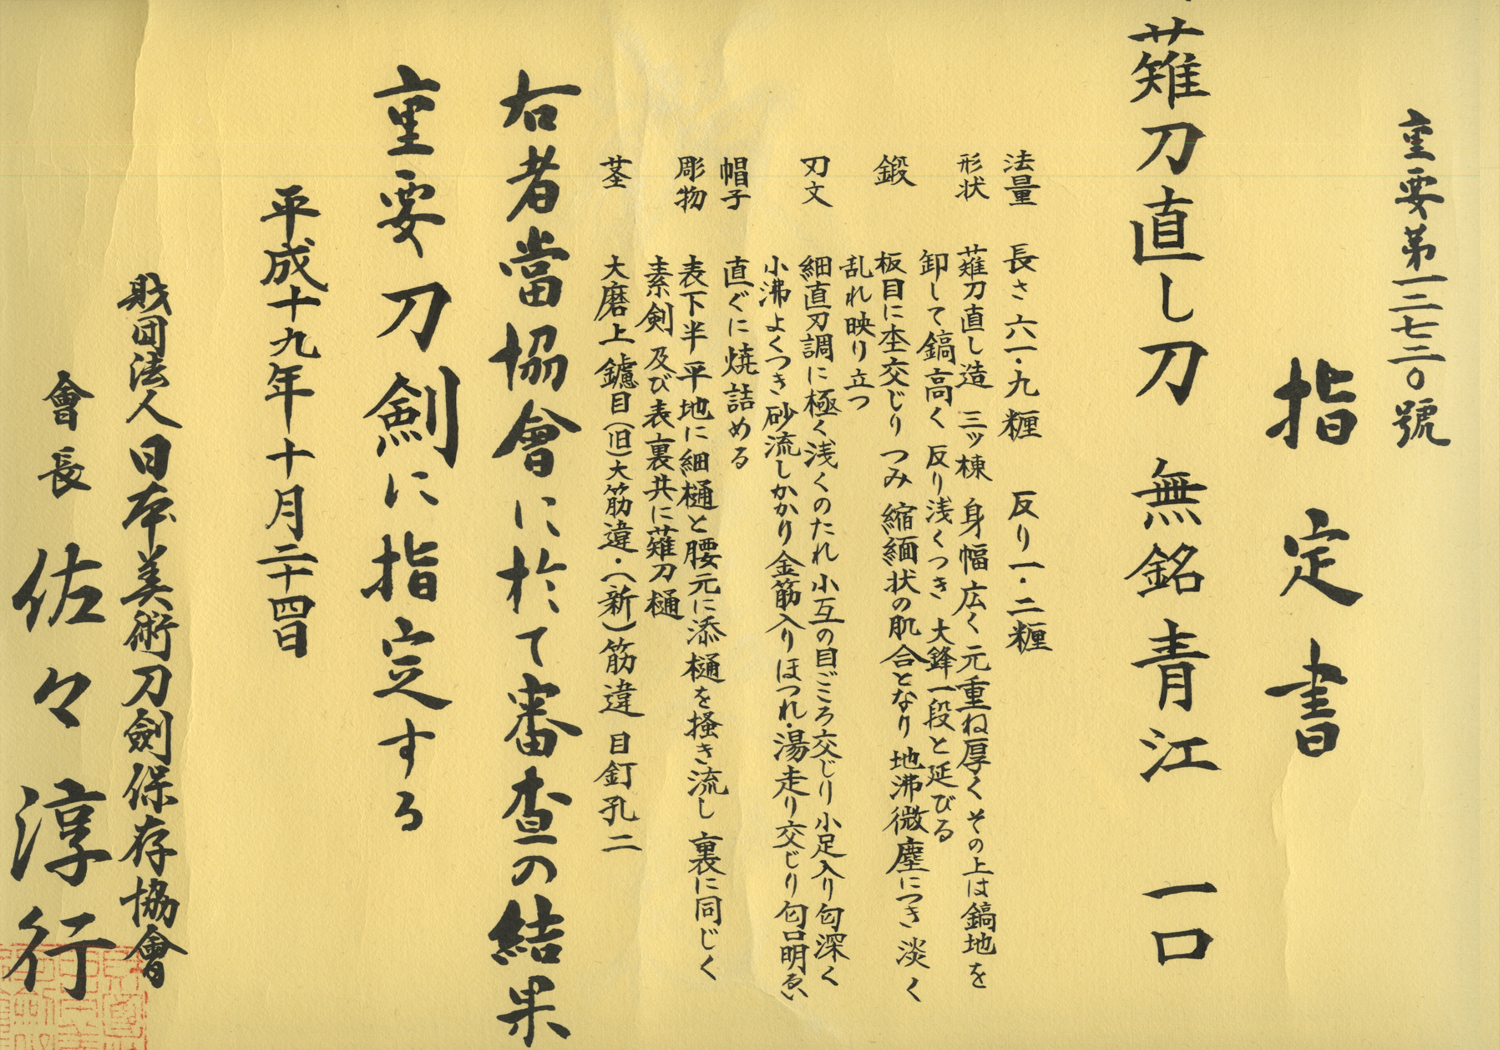 重要第一二七二〇號
指定書
薙刀直し刀 無銘青江 一口
法量 長さ 六一・九糎 反り一・二糎
形状 薙刀直し造 三ッ棟 身幅広く 元重ね厚く その上は鎬地を
卸して鎬高く 反り浅くつき 大鋒一段と延びる
鍛 板目に杢交じり つみ 縮緬状の肌合となり 地沸微塵につき 淡く
乱れ映り立つ
刃文 細直刃調に極く浅くのたれ 小互の目ごころ交じり 小足入り 匂深く
小沸よくつき 砂流しかかり 金筋入り ほつれ・湯走り交じり 匂口明るい
帽子 直ぐに焼詰める
彫物 表下半 平地に細樋と腰元に添樋を掻き流し 裏に同じく
素剣 及び表裏共に薙刀樋
茎 大磨上 鑢目(旧)大筋違・(新)筋違 目釘孔二
右者當協會に於て審査の結果
重要刀剣に指定する
平成十九年十月二十四日
財団法人日本美術刀劍保存協會
會長 佐々淳行